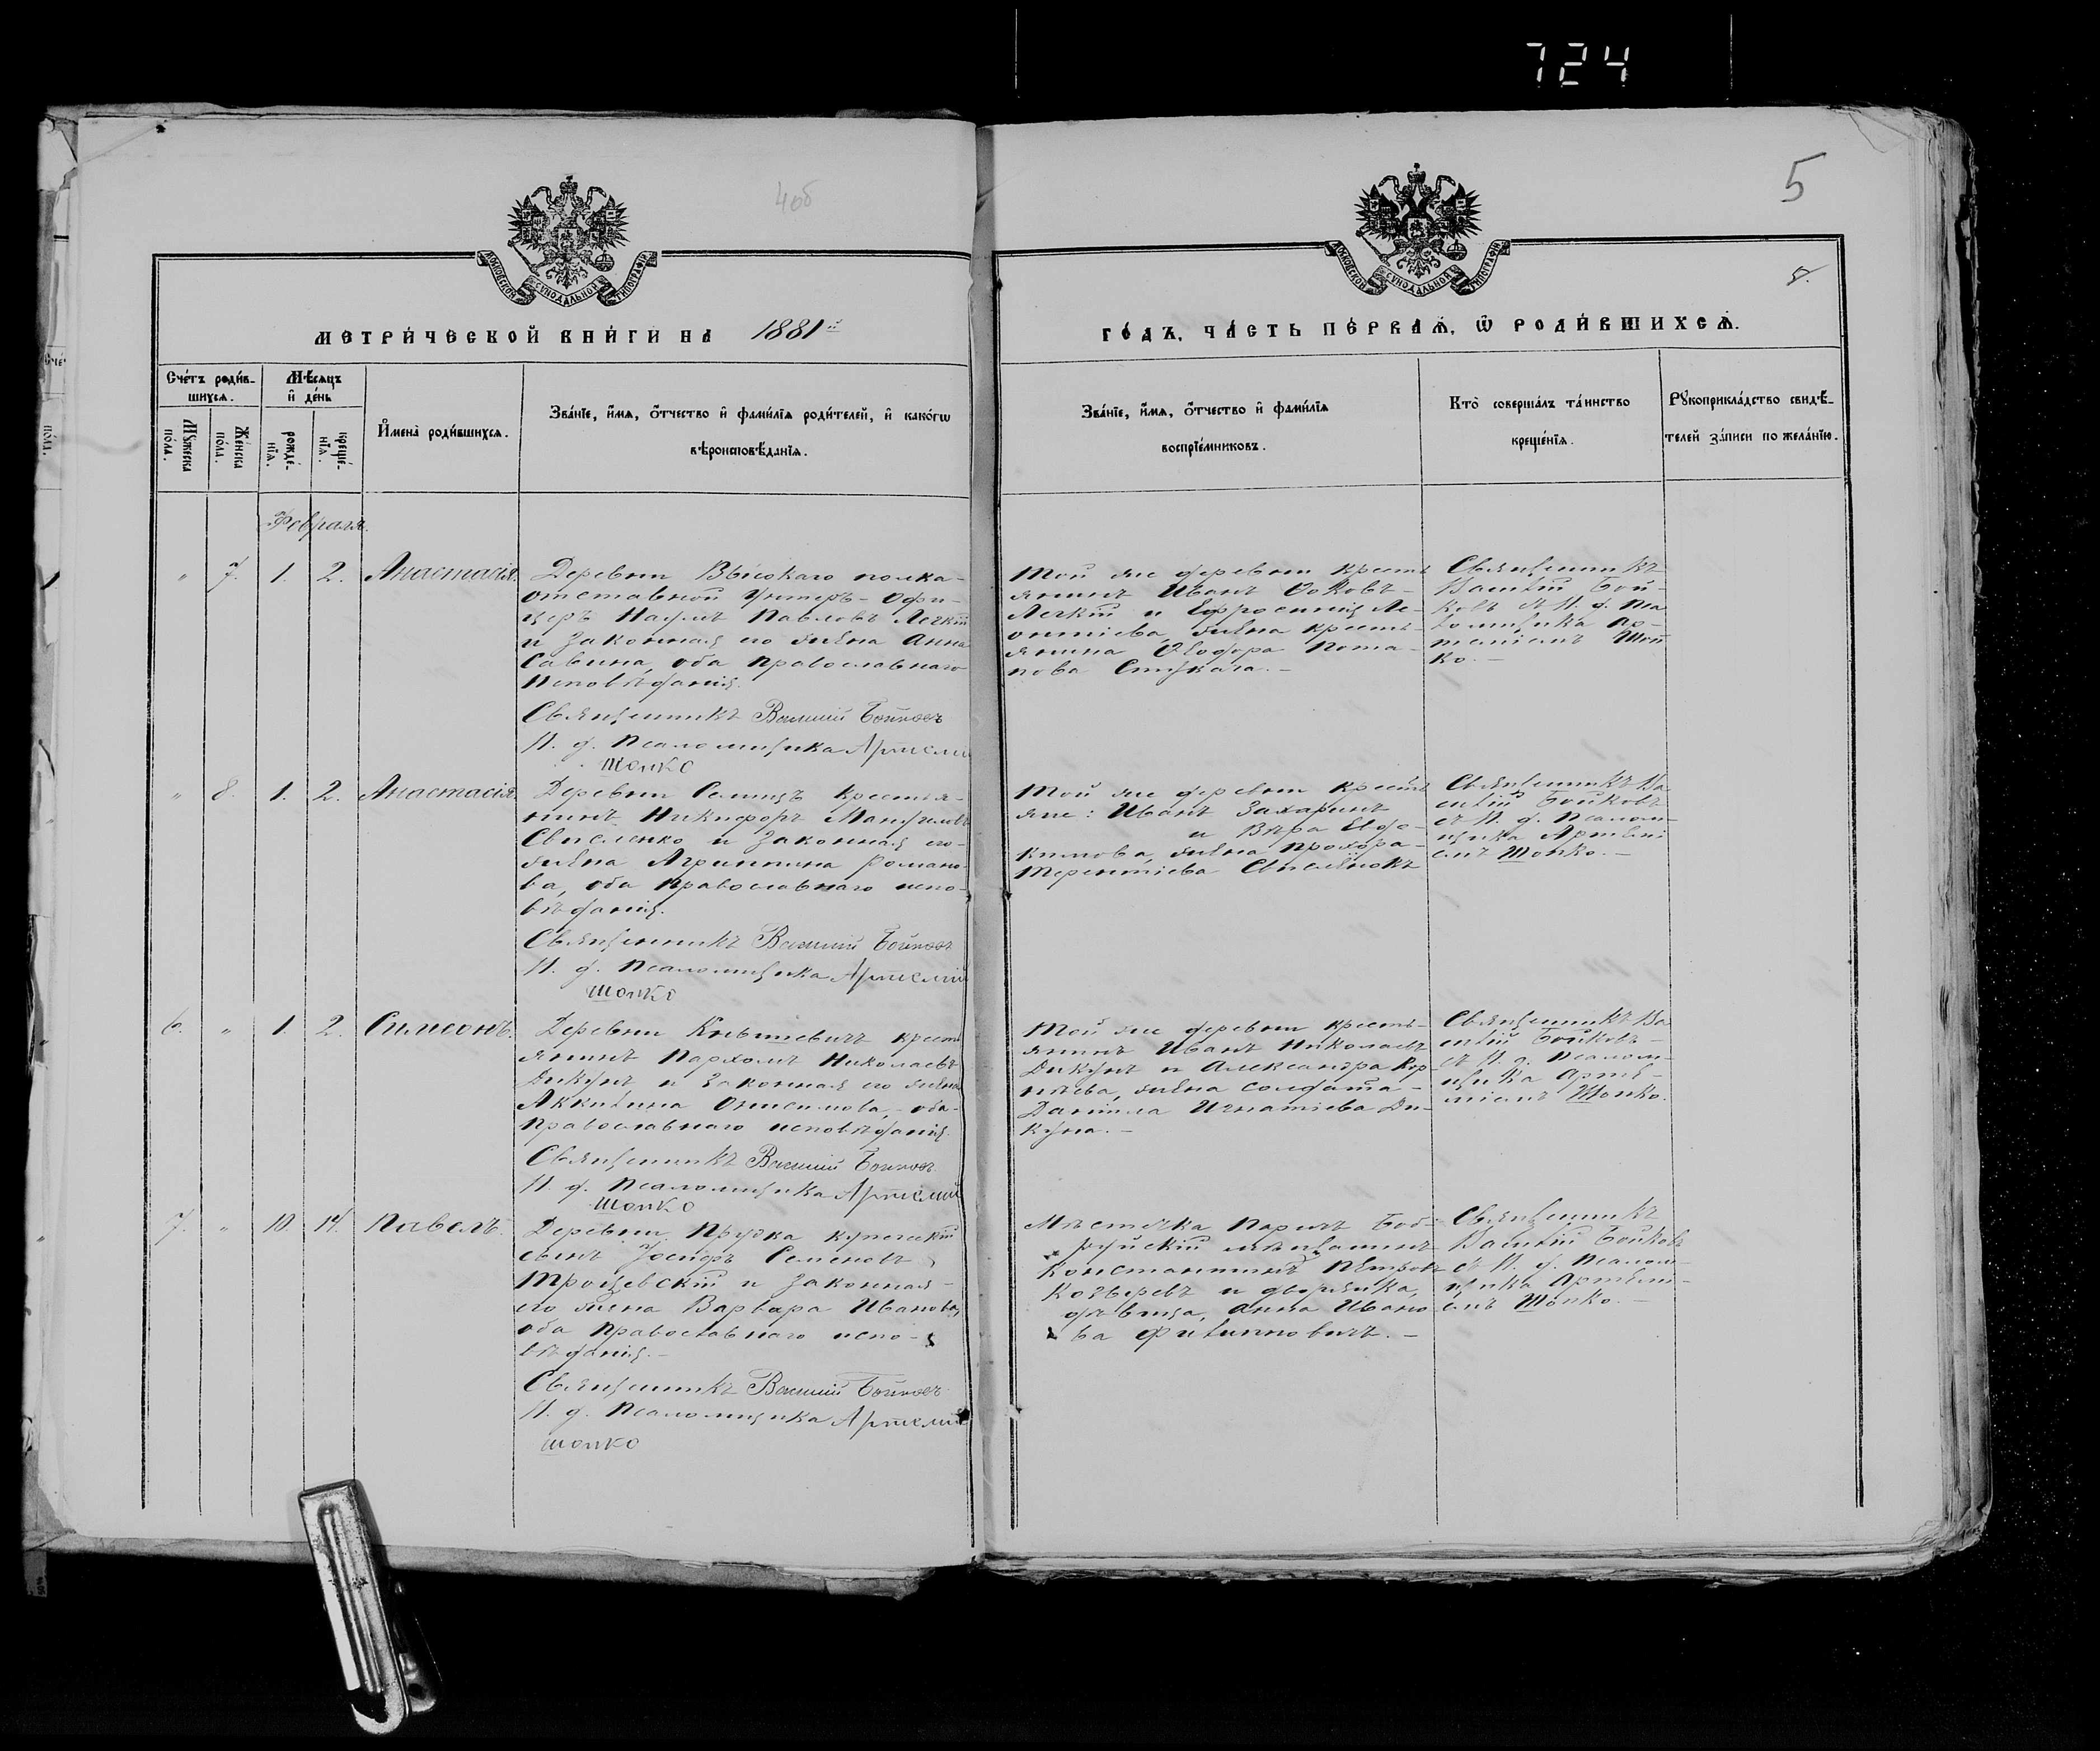 724
4об
5
5.
МОСКОВСКОЙ СѴНОДАЛЬНОЙ ТИПОГРАФІИ
МОСКОВСКОЙ СѴНОДАЛЬНОЙ ТИПОГРАФІИ
МЕТРИ́ЧЕСКОЙ КНИ́ГИ НА 1881й
ГО́ДЪ, ЧА́СТЬ ПЕ́РВАѦ, Ѡ҆ РОДИ́ВШИХСѦ.
Сче́тъ роди́в-
шихсѧ.
Мѣ́сѧцъ
и҆ де́нь
Мꙋ́жеска
по́ла.
Же́нска
по́ла.
рожде́-
нїѧ.
креще́-
нїѧ.
И҆мена̀ роди́вшихсѧ.
Зва́нїе, и҆́мѧ, ѻ҆́тчество и҆ фами́лїѧ роди́телей, и҆ како́гѡ
вѣроисповѣ́данїѧ.
Зва́нїе, и҆́мѧ, ѻ҆́тчество и҆ фами́лїѧ
воспрїе́мниковъ.
Кто̀ соверша́лъ та́инство
креще́нїѧ.
Рꙋкоприкла́дство свидѣ́-
телей за́писи по жела́нїю.
Февраля.
" 7. 1. 2. Анастасія.
Деревни Высокаго полка
отставной Унтеръ-Офи-
церъ Наумъ Павловъ Легкій
и законная его жена Анна
Савина, оба православнаго
исповѣданія.
Священникъ Василій Бойковъ
И. д. Псаломщика Артемій
Шопко
Той же деревни кресть
янинъ Иванъ
Легкій и Ефросинія Ле-
онтіева, жена кресть-
янина Ѳеодора Пота-
пова Стукача. -
Священникъ
Василій Бой-
ковъ съ И. д. Пса
ломщика Ар-
теміемъ Шоп
ко. -
" 8. 1. 2. Анастасія.
Деревни Селищъ крестья-
нинъ Никифоръ Мануиловъ
Свисленко и законная его
жена Агриппина Романо-
ва, оба православнаго испо-
вѣданія.
Священникъ Василій Бойковъ
И. д. Псаломщика Артемій
Шопко
Той же деревни кресть
яне: Иванъ Захаринъ
и Вѣра Евдо-
кимова, жена Прохора
Терентіева Свислёнокъ
Священникъ Ва
силій Бойковъ
съ И. д. Псалом-
щика Артемі
емъ Шопко. -
6. " 1. 2. Симеонъ.
Деревни Кнышевичъ кресть
янинъ Пархомъ Николаевъ
Дикунъ и законная его жена
Аккилина Онисимова, - оба
православнаго исповѣданія.
Священникъ Василій Бойковъ
И. д. Псаломщика Артемій
Шопко
Той же деревни кресть-
янинъ Иванъ Николаевъ
Дикунъ и Александра Кор
нѣева, жена солдата -
Даніила Игнатіева Ди-
куна. -
Священникъ Ва
силій Бойковъ -
съ И. д. Псалом-
щика Артё-
міемъ Шопко.
7. " 10. 14. Павелъ.
Деревни Прудка купеческій
сынъ Іосифъ Семеновъ
Троцевскій и законная -
его жена Варвара Иванова,
оба православнаго испо-
вѣданія. -
Священникъ Василій Бойковъ
И. д. Псаломщика Артемій
Шопко
Мѣстечка Паричъ Боб-
руйскій мѣщанинъ
Константинъ Петровъ
Козыревъ и дворянка,
дѣвица, Анна Ивано
ва Филипповичъ. -
Священникъ
Василій Бойковъ
съ И. д. Псалом-
щика Артемі-
емъ Шопко. -